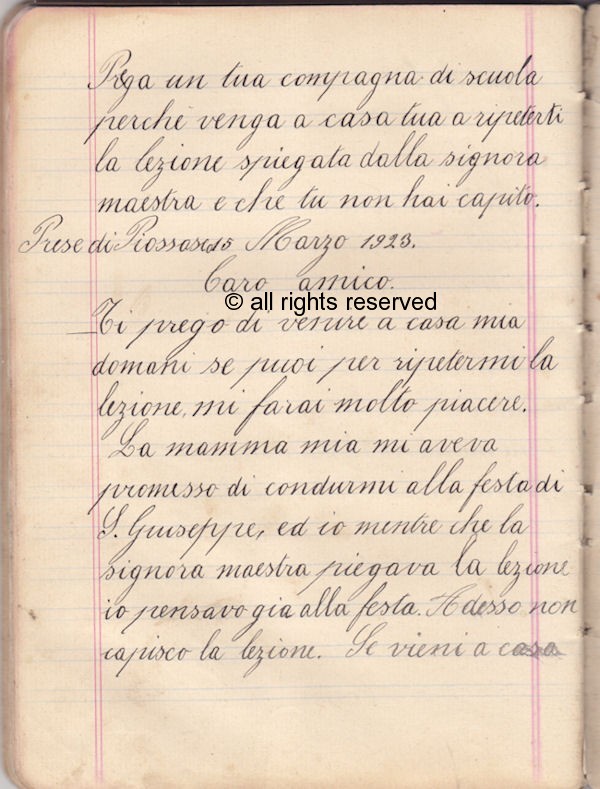 Prega un tua compagna di scuola
perchè venga a casa tua a ripeterti
la lezione spiegata dalla signora
maestra e che tu non hai capito.
Prese di Piossasco, 15 Marzo 1923.
Caro amico.
© all rights reserved
Ti prego di venire a casa mia
domani se puoi per ripetermi la
lezione, mi farai molto piacere.
La mamma mia mi aveva
promesso di condurmi alla festa di
S. Guiseppe, ed io mentre che la
signora maestra piegava la lezione
io pensavo gia alla festa. Adesso non
capisco la lezione. Se vieni a casa